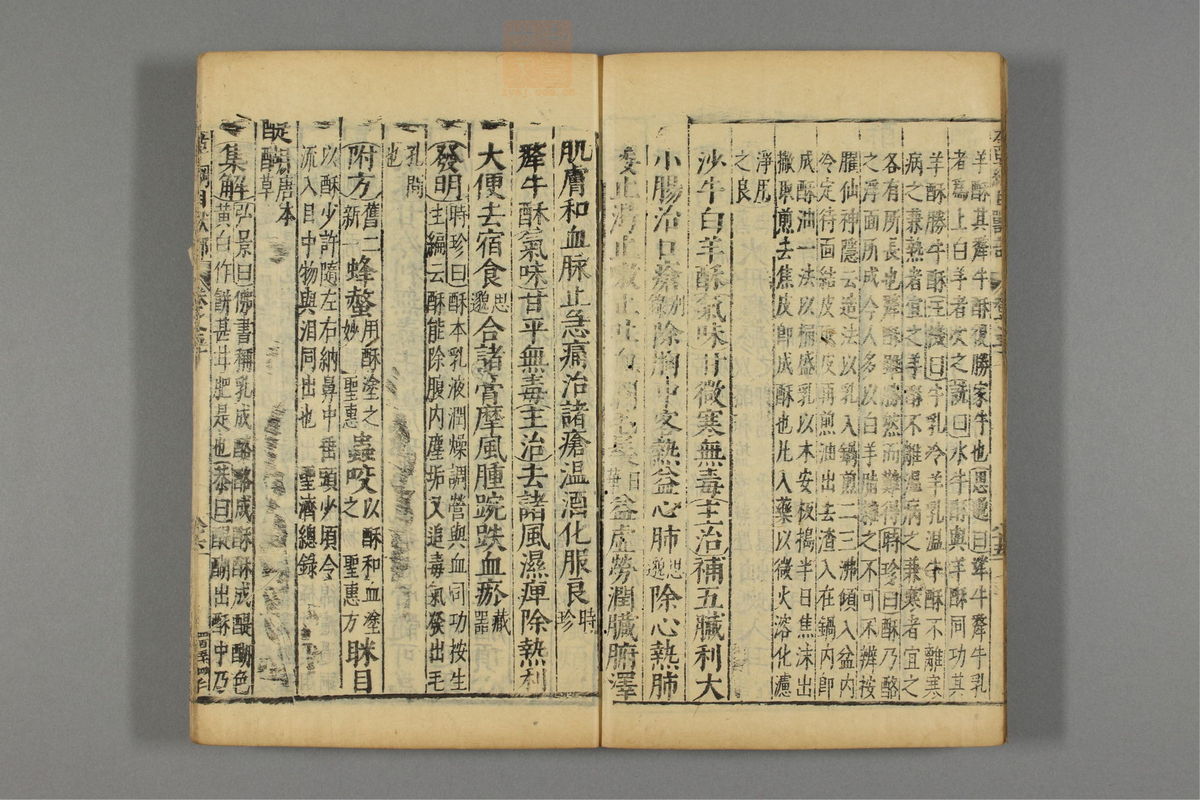 羊酥其犛牛酥復勝家牛也思邈曰犛牛犛牛乳
者爲上白羊者次之詵曰水牛酥與羊酥同功其
羊酥勝牛酥王機曰牛乳冷羊乳温牛酥不離寒
病之兼熱者宜之羊酥不離温病之兼寒者宜之
各有所長也犛酥雖勝然而難得時珍曰酥乃酪
之浮面所成今人多以白羊脂雜之不可不辨按
臞仙神隱云造法以乳入鍋煎二三沸傾入盆内
冷定待面結皮取皮再煎油出去渣入在鍋内即
成酥油一法以桶盛乳以木安板搗半日焦沫出
撇取煎去焦皮即成酥也凡入藥以微火溶化濾
淨用
之良
沙牛白羊酥氣味甘微寒無毒主治補五臟利大
小腸治口瘡別錄除胸中客熱益心肺思邈除心熱肺
痿止渴止嗽止吐血潤毛髮日華益虛勞潤臟腑澤
肌膚和血脉止急痛治諸瘡温酒化服良時珍
犛牛酥氣味甘平無毒主治去諸風濕痺除熱利
大便去宿食思邈合諸膏摩風腫踠跌血瘀藏器
發明時珍曰酥本乳液潤燥調營與血同功按生
生編云酥能除腹内塵垢又追毒氣發出毛
孔間
也
附方舊二新一蜂螫用酥塗之妙聖惠蟲咬以酥和血塗之聖惠方眯目
以酥少許隨左右納鼻中垂頭少頃令
流入目中物與泪同出也聖濟總錄
醍醐唐本草
集解弘景曰佛書稱乳成酪酪成酥酥成醍醐色
黄白作餅甚甘肥是也恭曰醍醐出酥中乃